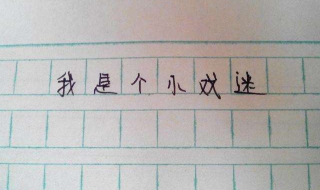 我是个小戏迷